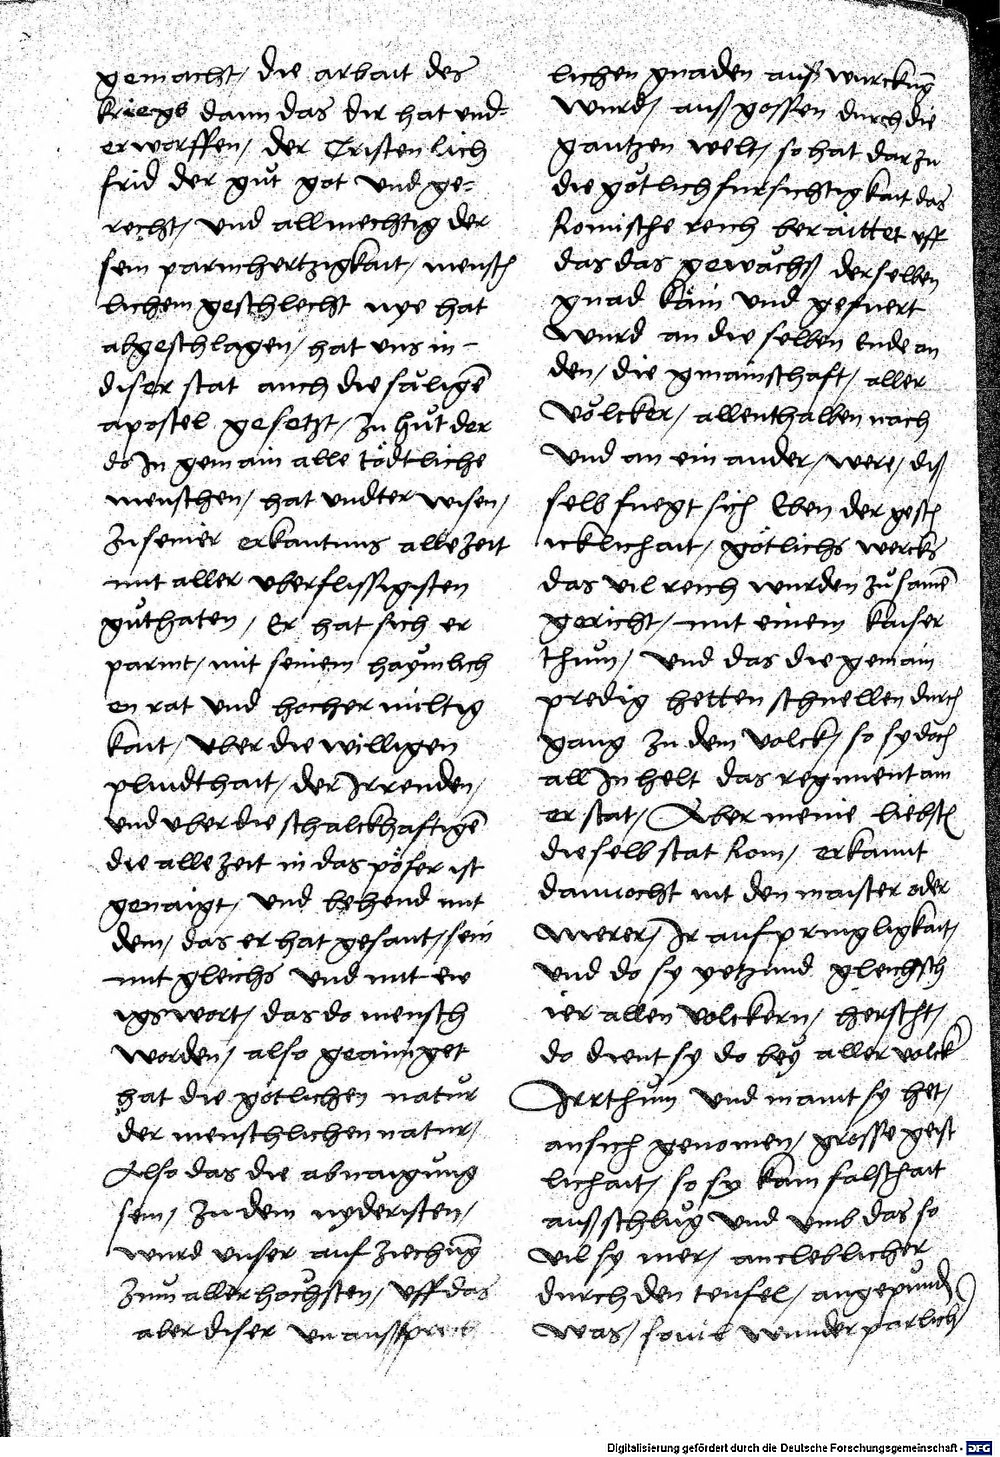 gemacht/ die arbait des
kriegs dann das dir hat vnd-
erworffen/ der Cristenlich
frid der gůt got vnd ge-
recht/ vnd allmechtig der
sein parmhertzigkait/ mensch
lichem geschlecht nye hat
abgeschlagen/ hat vns in-
diser stat auch die såligē
apostel gesetzt/ zu hůt der
do In gemain alle tödtliche
menschen/ hat vndter wisen/
zu seiner erkantnus alle zeit
mit aller vberflissigisten
gůthaten/ Er hat sich er
parmt/ mit seinem haymlich
en rat vnd hocher miltig
kait/ vber die willigen
plindthait/ der Irrenden/
vnd vber die schalckhaftigē
die alle zeit in das pöser ist
genaigt/ vnd behend mit
dem/ das er hat gesant/ sein
mit gleichs vnd mit ew
igs wort/ das do mensch
worden/ also geainiget
hat die götlichen natur
der menschlichen natur/
Also das die abnaigung
sein/ zu dem nyderisten/
wurd vnser auf ziechūg
zum aller hochsten/ vff das
aber diser vn aussprech
lichen gnaden auß wurckūg
wurd/ auß gossen durch die
gantzen welt/ so hat dar zu
die götlich fursichtigkait das
Romische reich beraittet vff
das das gewåchß derselben
gnad kåm vnd gefuert
wurd an die selben Ende an
den/ die gmainschaft/ aller
Völcker/ allenthalben nach
vnd an ein ander/ were/ diß
selb fuegt sich Eben der gesch
icklichait/ götlichs wercks
das vil reich wurden zů samē
gericht/ mit einem kaiser
thum/ vnd das die gemain
predig hetten schnellen durch
gang zu dem volck/ so sy doch
all In helt das regiment am
er stat/ Aber meine liebstē
die selb stat Rom/ erkannt
dannocht nit den maister oder
merer/ Ir aufpringligkait/
vnd do sy yetzund gleichsch
ier allen volckern/ herscht/
do dient sy do bey aller volck
Irrthum vnd maint sy het/
an sich genomen/ grosse geist
lichait/ so sy kain falschait
auß schlug vnd vmb das so
vil sy mer/ ancleblicher
durch den teufel/ angepund
was/ souil wunderparlich
Digitalisierung gefördert durch die Deutsche Forschungsgemeinschaft - DFG